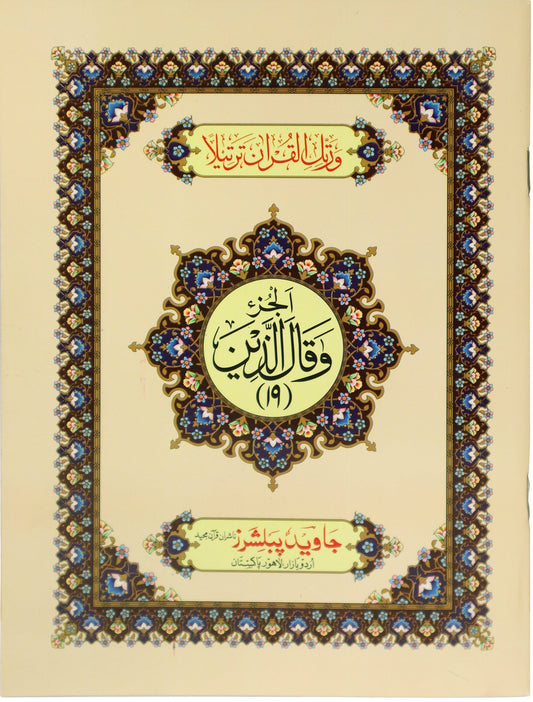 ورتل القرآن ترتیلا
الجزء
وَقَالَ الَّذِیْنَ
(۱۹)
جاوید پبلشرز ناشران قرآن مجید
اردو بازار لاہور پاکستان